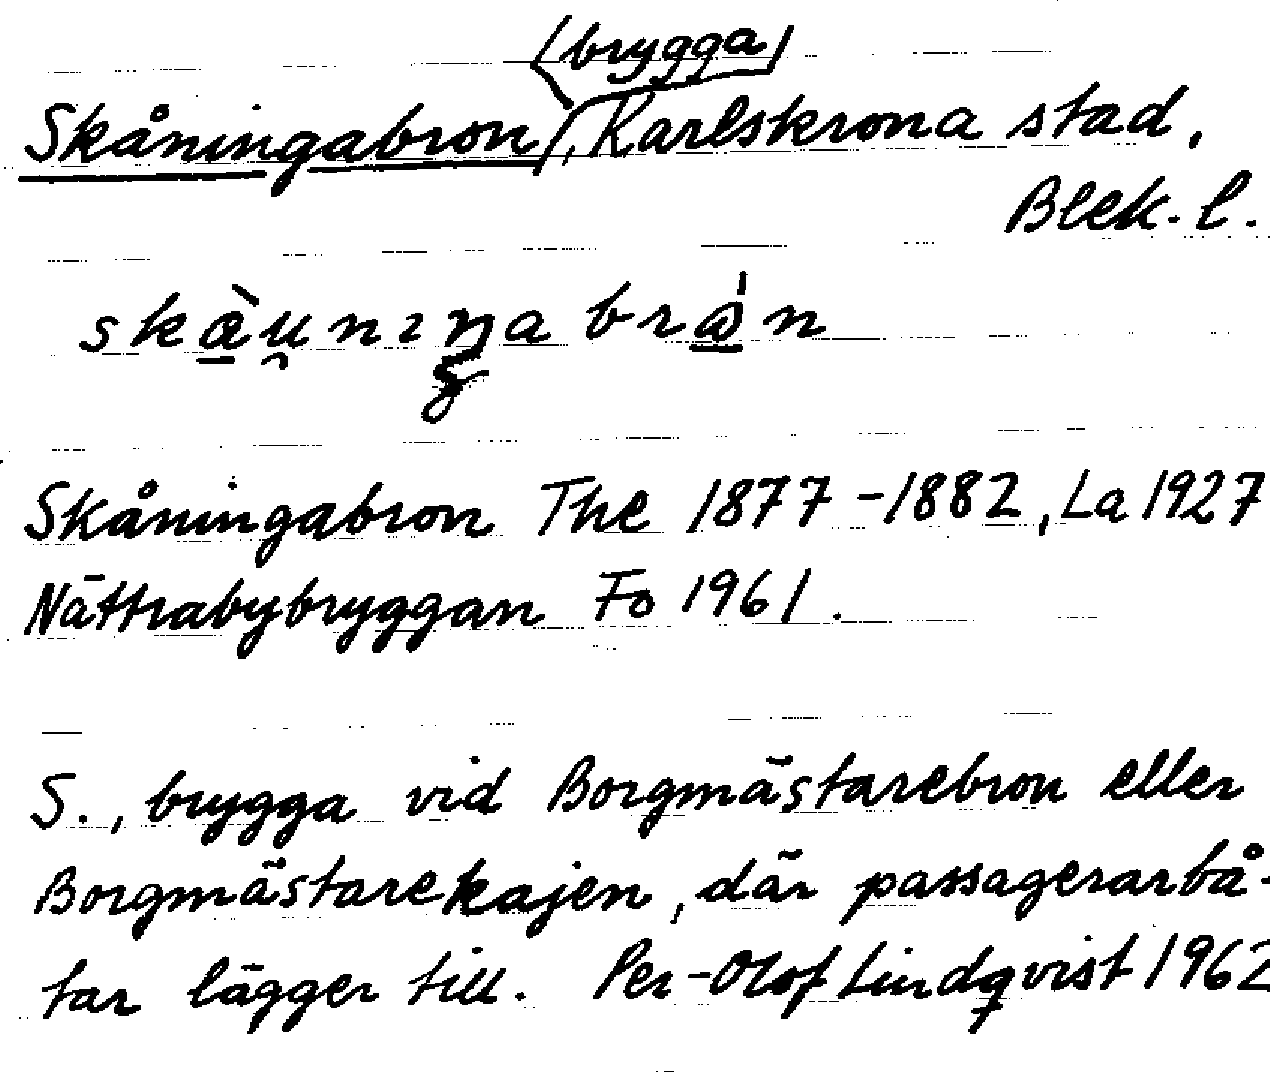 (brygga)
Skåningabron, Karlskrona stad,
Blek. l.
Skåningabron The 1877-1882, La 1927
Nättrabybryggan Fo 1961.
S., brygga vid Borgmästarebron eller
Borgmästarekajen, där passagerarbå-
tar lägger till. Per-Olof Lindqvist 1962